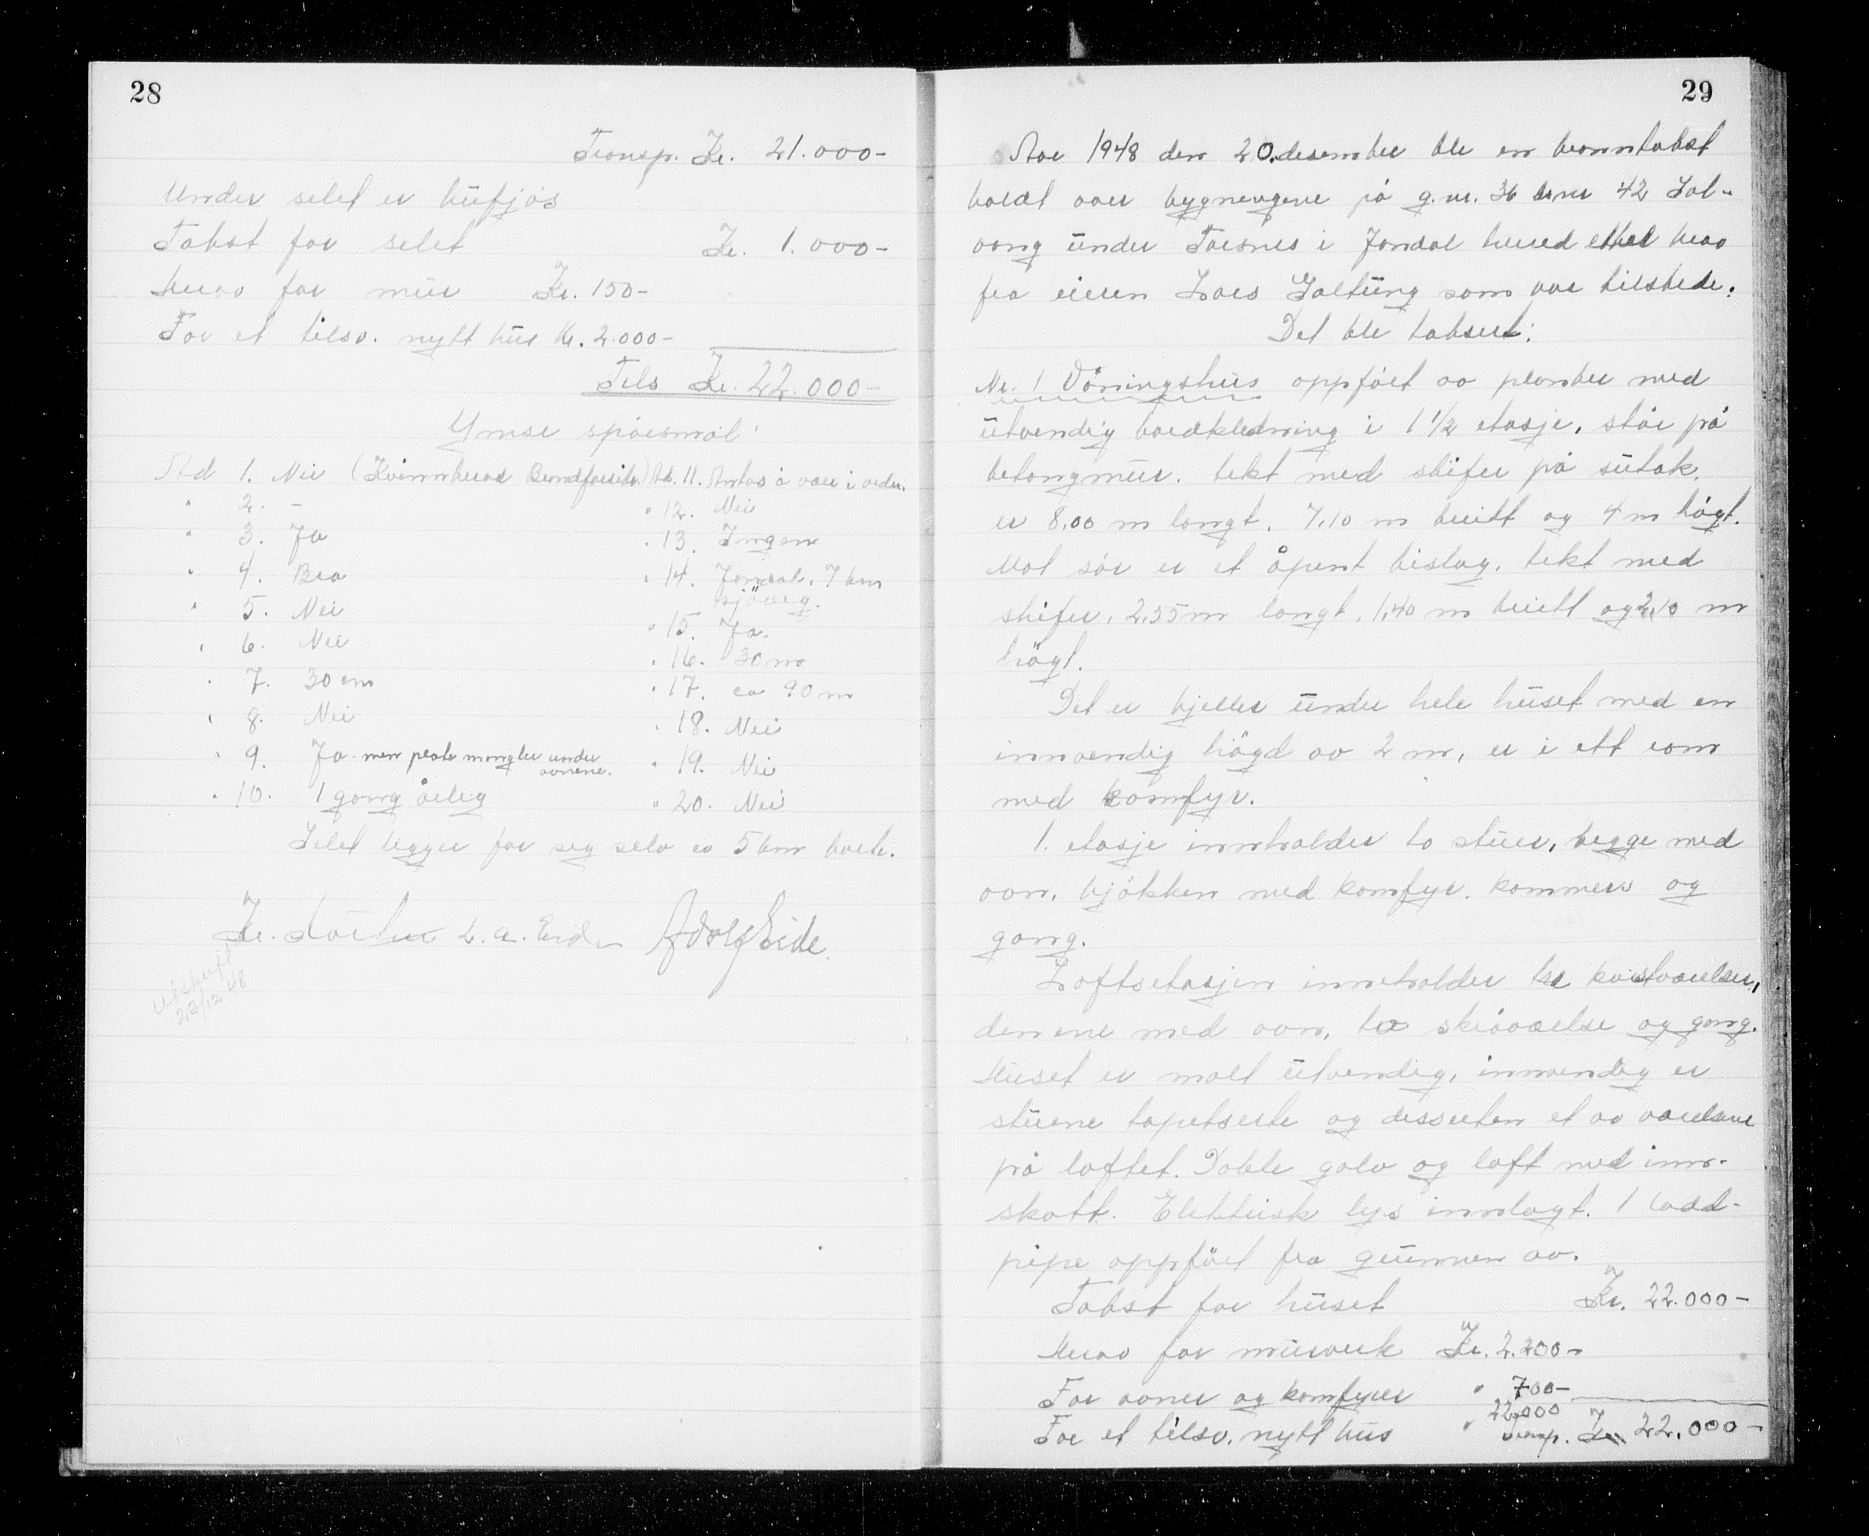 28
Transp. Kr. 21.000-
Under selet er kufjøs
Takst for selet Kr. 1.000-
Herav for mur Kr. 150-
For et tilsv. nytt hus Kr. 2.000-
Tils Kr. 22.000-
Ymse spørsmål:
Ad 1. Nei (Kvinnherad Bondforsikr.)
" 2. -
" 3. Ja
" 4. Bra
" 5. Nei
" 6. Nei
" 7. 30 cm
" 8. Nei
" 9. Ja men plate mangler under
ovnene.
" 10. 1 gang årleg
Ad. 11. Antas å vær i orden.
" 12. Nei
" 13. Ingen
" 14. Jondal, 7 km
sjøveg.
" 15. Ja.
" 16. 30 m
" 17. ca 90 m
" 18. Nei
" 19. Nei
" 20. Nei
Selet ligger for seg selv ca 5 km borte.
Kr. L. A. Eide Adolf Eide.
Utskrift
23/12 48
29
Aar 1948 den 20. desember ble en branntakst
holdt over bygningene på g.nr. 36 brnr 42 Sol-
vang under Torsnes i Jondal herred etter krav
fra eieren Lars Galtung som var tilstede.
Det ble taksert:
Nr. 1 Våningshus oppført av planker med
utvendig bordkledning i 1 1/2 etasje, står på
betongmur. tekt med skifer på sutak.
er 8,00 m langt, 7,10 m breitt og 4 m høgt.
Mot sør er et åpent bislag, tekt med
skifer, 2,35 m langt, 1,40 m breitt og 2,10 m
høgt.
Det er kjeller under hele huset med en
innvendig høgd av 2 m, er i ett rom
med komfyr.
1. etasje innholder to stuer, begge med
ovn, kjøkken med komfyr. kammers og
gang.
Loftsetasjen inneholder tre kvistværelser,
den ene med ovn, to skråværelse og gang.
Huset er malt utvendig, innvendig er
stuene tapetserte og dessuten et av værelsene
på loftet. Doble golv og loft med inn-
skott. Elektrisk lys innlagt. 1 Vadd-
pipe oppført fra grunnen av.
Takst for huset Kr. 22.000-
Herav for murverk Kr. 2.200-
For ovner og komfyrer " 700-
For et tilsv. nytt hus " 22.000
Transp. Kr. 22.000-